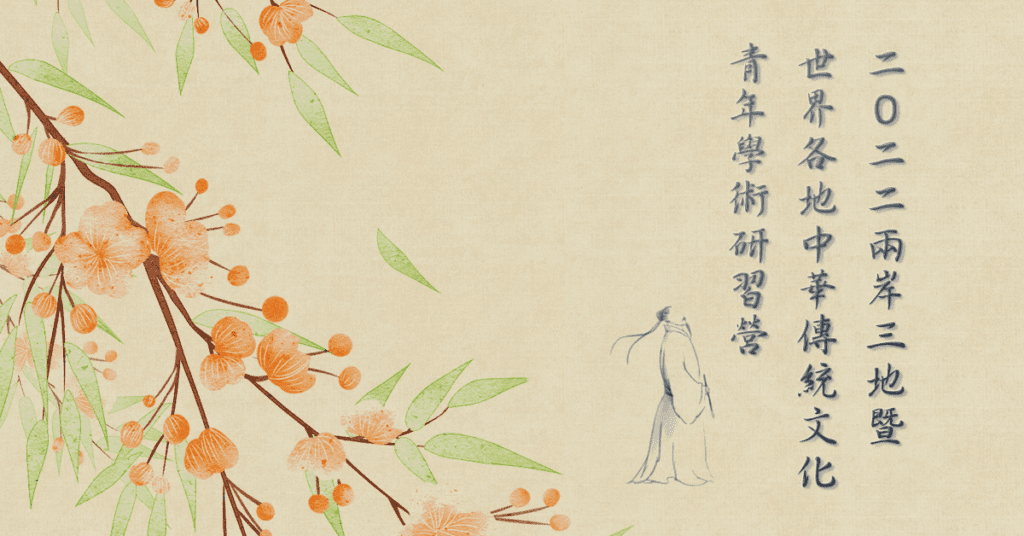 二０二二兩岸三地暨
世界各地中華傳統文化
青年學術研習營